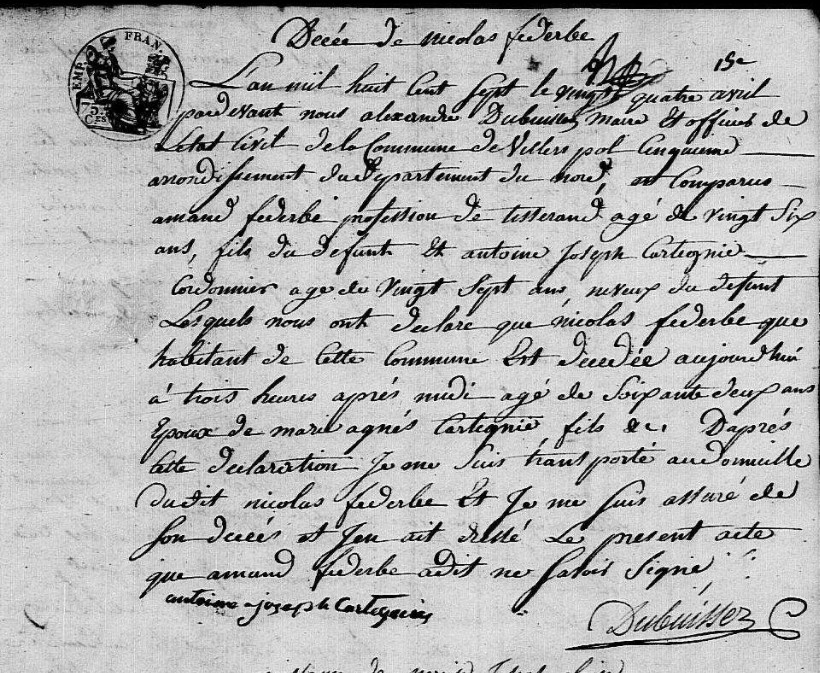 EMP. FRAN.
Decée de nicolas federbe
15e
L'an mil huit Cent Sept le vingt quatre avril
pardevant nous alexandre Dubuisson maire Et officier de
L'état Civil de la Commune de Villers pol Cinquieme
arrondissement du Departement du nord, est Comparus
amand federbe profession de tisserand agé de vingt Six
ans, fils du defunt Et antoine Joseph Cartegnie
Cordonnier age de Vingt Sept ans, neveux du defunt
Lesquels nous ont declare que nicolas federbe que
habitant de Cette Commune Est decedée aujourdhui
à trois heures aprés midi agé de Soixante deux ans
Epoux de marie agnés Cartegnie fils &c. Daprés
Cette declaration Je me Suis transporté au domicille
dudit nicolas federbe Et Je me Suis assuré de
Son decés et Jen ait dressé Le present acte
que amand federbe a dit ne Savoir Signé
antoine joseph Cartegnie
Dubuisson